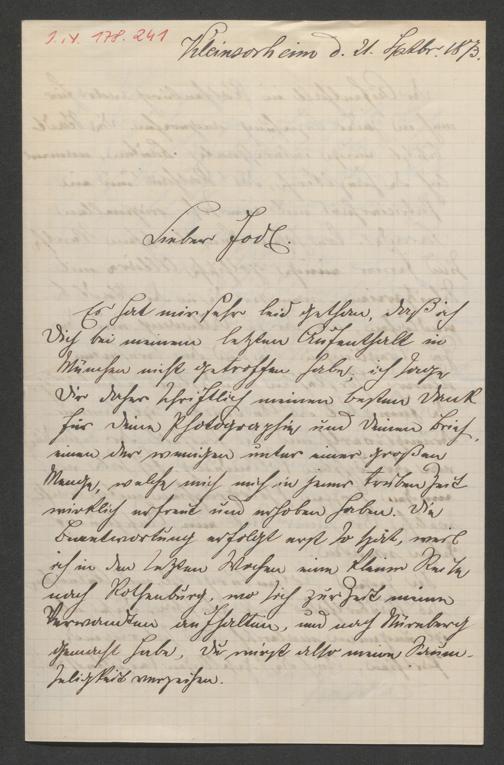 I. N. 178.241
Kleinsorheim d. 21. Septbr. 1873.
Lieber Jodl.
Es hat mir sehr leid gethan, daß ich
Dich bei meinem letzten Aufenthalt in
München nicht getroffen habe; ich sage
Dir daher schriftlich meinen besten Dank
für Deine Photographie und Deinen Brief,
einen der wenigen unter einer großen
Menge, welche mich mich in jener trüben Zeit
wirklich erfreut und erhoben haben. Die
Beantwortung erfolgt erst so spät, weil
ich in den letzten Wochen eine kleine Reise
nach Rothenburg, wo sich zur Zeit meine
Verwandten aufhalten, und nach Nürnberg
gemacht habe, Du wirst also meine Saum-
seligkeit verzeihen.